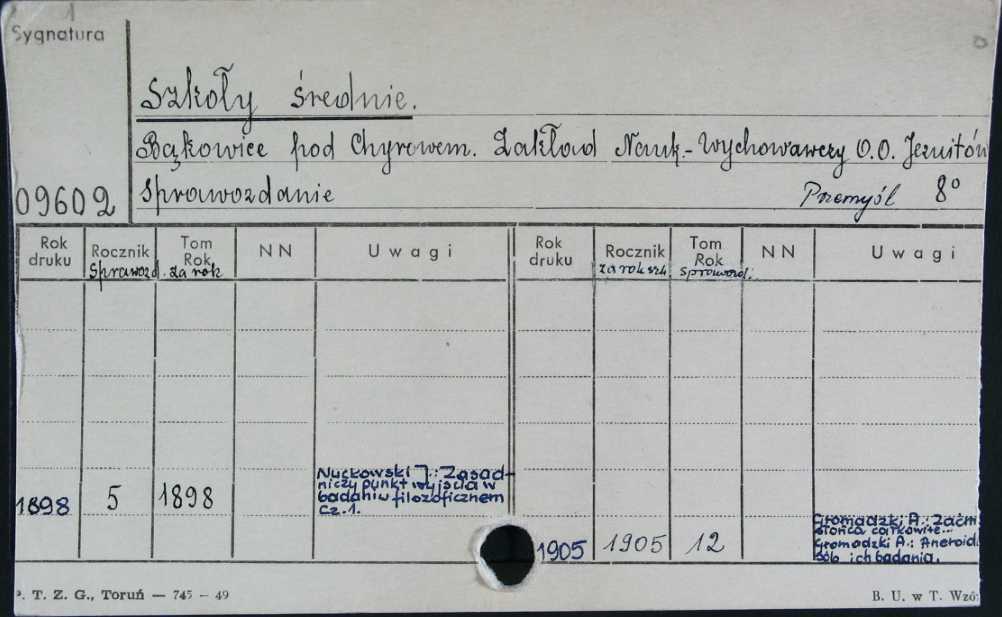 1
Sygnatura
Szkoły średnie.
Bąkowice pod Chyrowem. Zakład Nauk.-Wychowawczy O.O. Jezuitów
09602
Sprawozdanie
Przemyśl 8°
Rok druku
Rocznik
Sprawozd.
Tom Rok
za rok
NN
Uwagi
Rok druku
Rocznik
za rok szk.
Tom Rok
sprawozd.
NN
Uwagi
1898
5
1898
Nuckowski J.: Zasad-
niczy punkt wyjścia w
badaniu filozoficznem
cz.1.
1905
1905
12
Gromadzki A.: Zaćm.
słońca całkowite...
Gromadzki A.: Aneroid.
ich badania.
P. T. Z. G., Toruń — 745 — 49
B. U. w T. Wzó